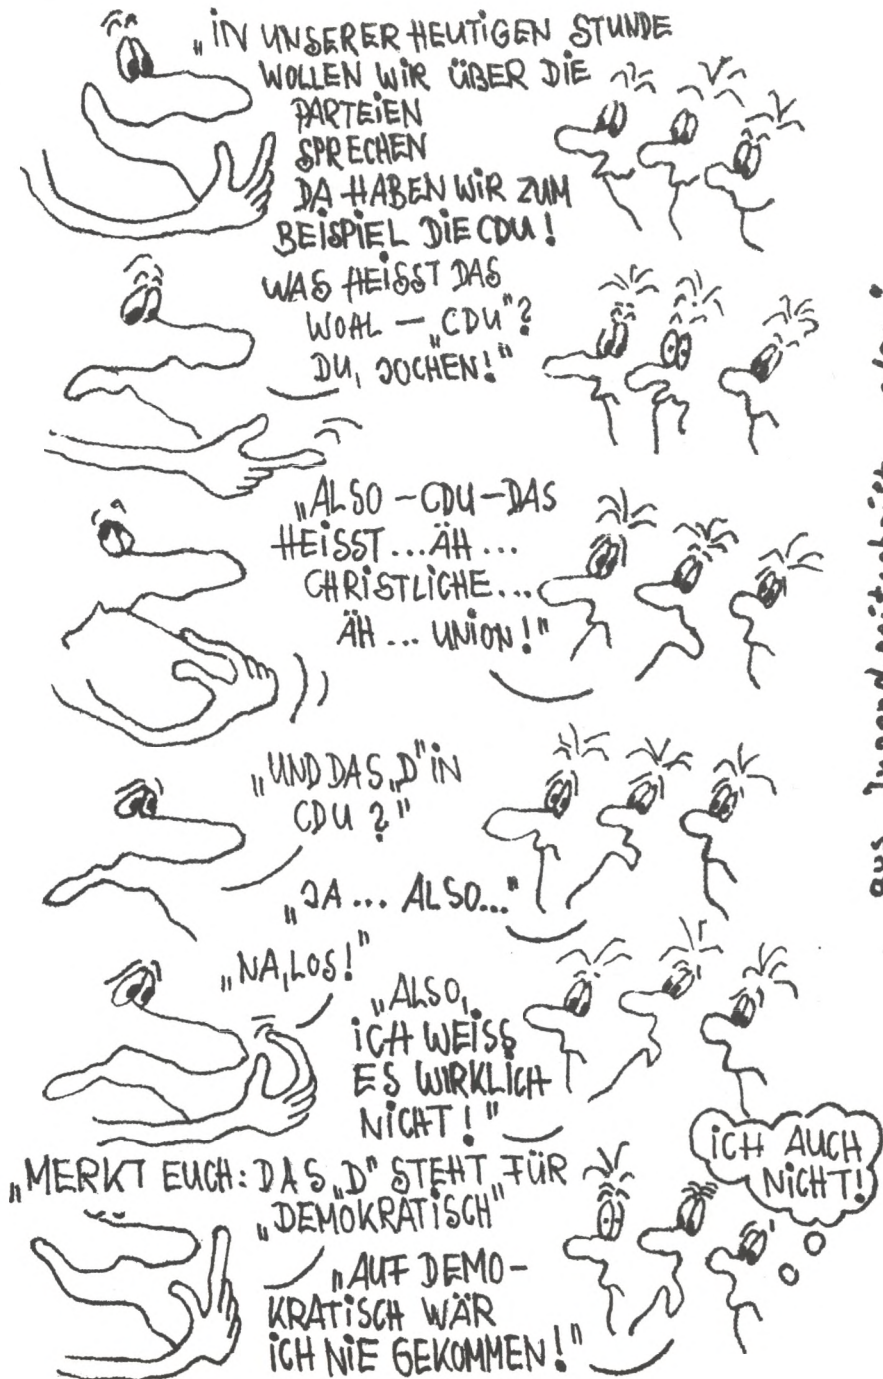 „IN UNSERER HEUTIGEN STUNDE
WOLLEN WIR ÜBER DIE
PARTEIEN
SPRECHEN
DA HABEN WIR ZUM
BEISPIEL DIE CDU!
WAS HEISST DAS
WOHL – „CDU"?
DU, JOCHEN!"
„ALSO – CDU – DAS
HEISST...ÄH...
CHRISTLICHE...
ÄH... UNION!"
„UND DAS „D" IN
CDU?"
„JA... ALSO..."
„NA, LOS!"
„ALSO,
ICH WEISS
ES WIRKLICH
NICHT!"
„MERKT EUCH: DAS „D" STEHT FÜR
„DEMOKRATISCH"
„AUF DEMO-
KRATISCH WÄR
ICH NIE GEKOMMEN!"
ICH AUCH
NICHT!
aus